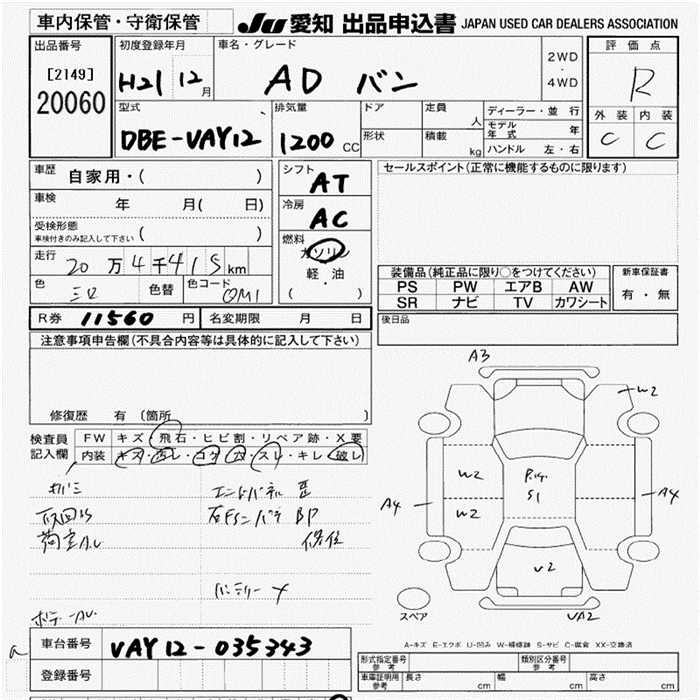 車内保管・守衛保管
JU 愛知 出品申込書 JAPAN USED CAR DEALERS ASSOCIATION
出品番号
[2149]
20060
初度登録年月
H21 12月
車名・グレード
AD バン
2WD
・
4WD
評価点
R
外装 内装
C C
型式
DBE-VAY12
排気量
1200 CC
ドア
形状
定員 人
積載 kg
ディーラー・並行
モデル年式 年
ハンドル 左・右
車歴 自家用・( )
車検 年 月( 日)
受検形態
車検付きのみ記入して下さい ( )
走行 20万4千415km
色 シロ 色替 色コード QM1
シフト AT
冷房 AC
燃料 ガソリン
軽・油
( )
セールスポイント(正常に機能するものに限ります)
装備品(純正品に限り○をつけてください)
PS PW エアB AW
SR ナビ TV カワシート
新車保証書
有・無
R券 11560 円 名変期限 月 日
後日品
注意事項申告欄(不具合内容等は具体的に記入して下さい)
修復歴 有 (箇所 )
検査員記入欄
FW キズ・飛石・ヒビ割・リペア跡・X要
内装 キズ・汚レ・コゲ・穴・スレ・キレ・破レ
エンドパネル
バッテリー
車台番号 VAY12-035343
登録番号
A3
W2
W2
W2
A4
A4
S1
U2
UA2
スペア
A-キズ E-エクボ U-凹み W-補修跡 S-サビ C-腐食 XX-交換済
形式指定番号 参考
類別区分番号 参考
車庫証明用 参考 長さ cm 幅 cm 高さ cm